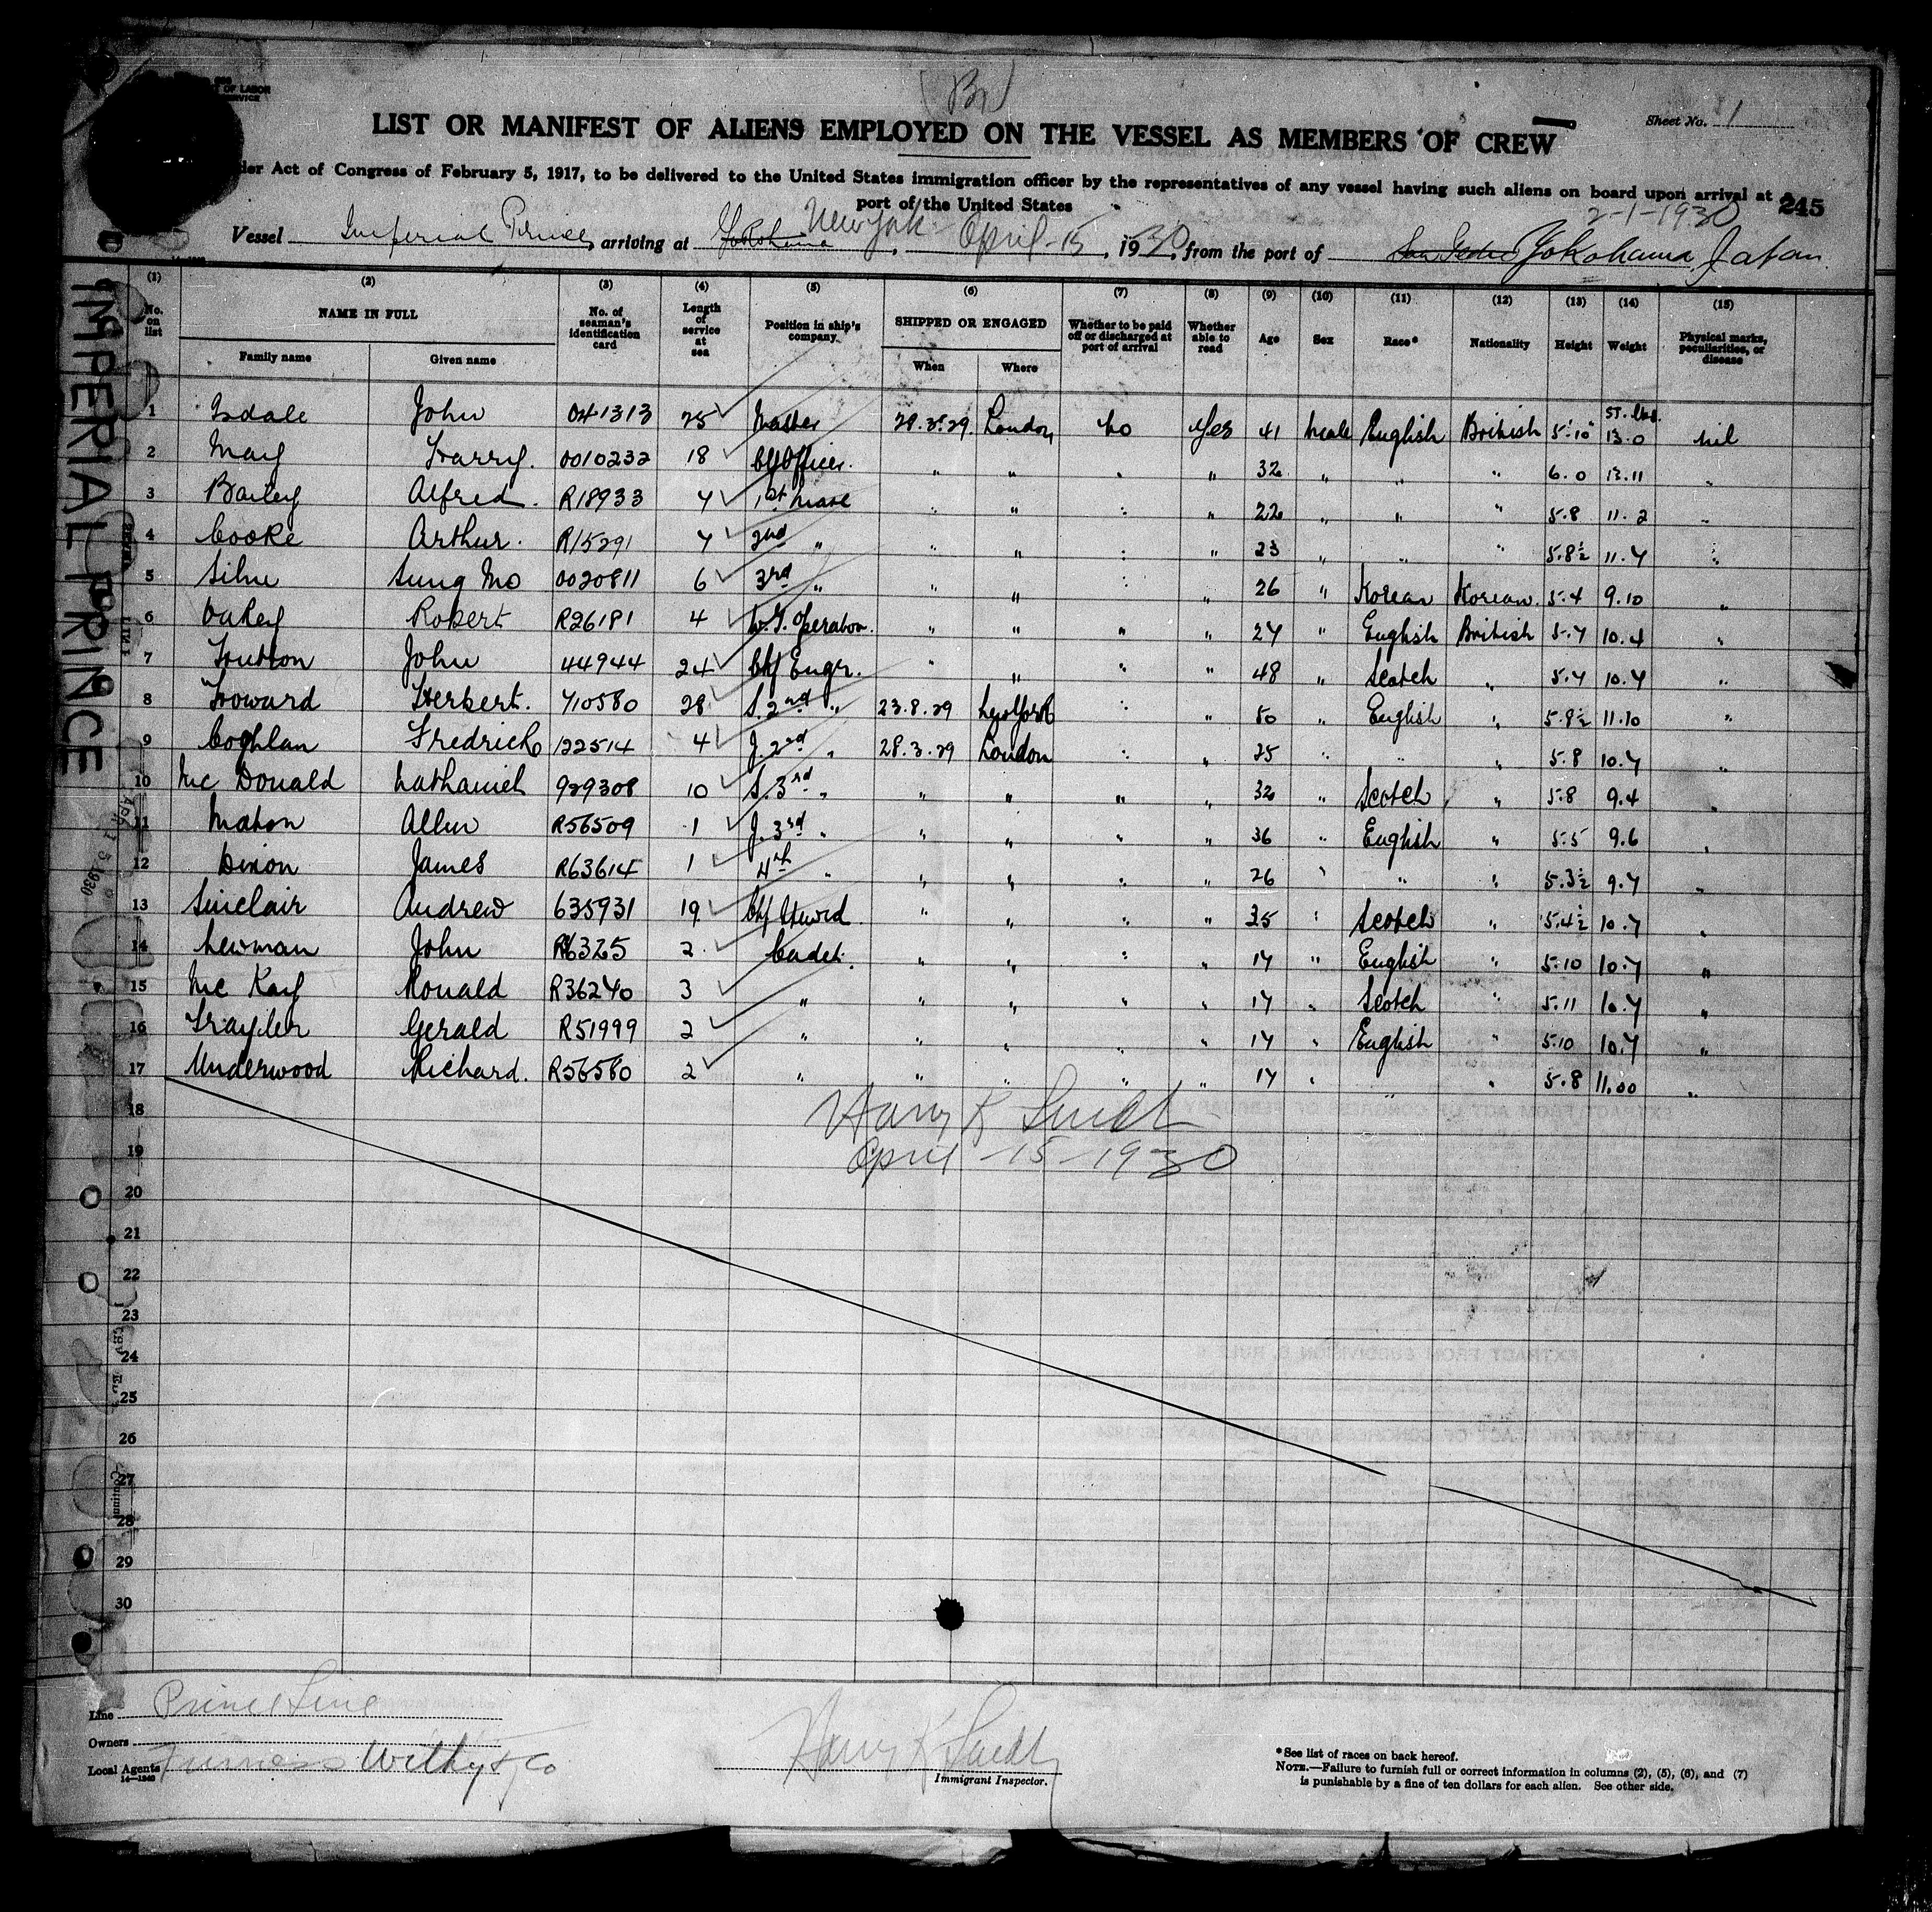 OF LABOR
SERVICE
(Br)
LIST OR MANIFEST OF ALIENS EMPLOYED ON THE VESSEL AS MEMBERS OF CREW
Sheet No. 1
der Act of Congress of February 5, 1917, to be delivered to the United States immigration officer by the representatives of any vessel having such aliens on board upon arrival at
port of the United States
245
2-1-1930
Vessel Imperial Prince, arriving at Yokohama New York, April-15, 1930, from the port of San Pedro Yokohama, Japan
IMPERIAL PRINCE
(1) (2) (3) (4) (5) (6) (7) (8) (9) (10) (11) (12) (13) (14) (15)
No. on list NAME IN FULL No. of seaman's identification card Length of service at sea Position in ship's company SHIPPED OR ENGAGED Whether to be paid off or discharged at port of arrival Whether able to read Age Sex Race* Nationality Height Weight Physical marks, peculiarities, or disease
Family name Given name When Where
ST. lbs.
1 Isdale John 041313 25 Master 28.3.29. London No Yes 41 Male English British 5'.10" 13.0 nil
2 May Harry. 0010232 18 Chf Officer. " " " " 32 " " " 6.0 13.11 "
3 Bailey Alfred. R18933 7 1st Mate " " " " 22 " " " 5.8 11.2 "
4 Cooke Arthur. R15291 7 2nd " " " " " 23 " " " 5.8½ 11.7 "
5 Sung Mo 0020811 6 3rd " " " " " 26 " Korean Korean. 5.4 9.10 "
6 Oakey Robert R26181 4 W.T. Operator. " " " " 27 " English British 5.7 10.4 "
7 Hutton John 44944 24 Chf Engr. " " " " 48 " Scotch " 5.7 10.7 "
8 Howard Herbert. 710580 28 S. 2nd " 23.8.29 New York " " 50 " English " 5.8½ 11.10 "
9 Coghlan Fredrick 122514 4 J. 2nd " 28.3.29 London " " 25 " " " 5.8 10.7 "
10 Mc Donald Nathaniel 929308 10 S. 3rd " " " " " 32 " Scotch " 5.8 9.4 "
11 Maton Allen R56509 1 J. 3rd " " " " " 36 " English " 5.5 9.6 "
12 Dixon James R63614 1 4th " " " " " 26 " " " 5.3½ 9.7 "
13 Sinclair Andrew 635931 19 Chf Stwrd. " " " " 35 " Scotch " 5.4½ 10.7 "
14 Newman John R6325 2 Cadet. " " " " 17 " English " 5.10 10.7 "
15 Mc Kay Ronald R36240 3 " " " " " 17 " Scotch " 5.11 10.7 "
16 Trayler Gerald R51999 2 " " " " " 17 " English " 5.10 10.7 "
17 Underwood Richard. R56580 2 " " " " " 17 " " " 5.8 11.00 "
18
Harry K Smidt
19
April-15-1930
20
21
22
23
24
25
26
27
28
29
30
Line Prince Line
Owners
Local Agents Furness Withy & Co
14-1240
Harry K Smidt
Immigrant Inspector.
*See list of races on back hereof.
NOTE.—Failure to furnish full or correct information in columns (2), (5), (6), and (7)
is punishable by a fine of ten dollars for each alien. See other side.